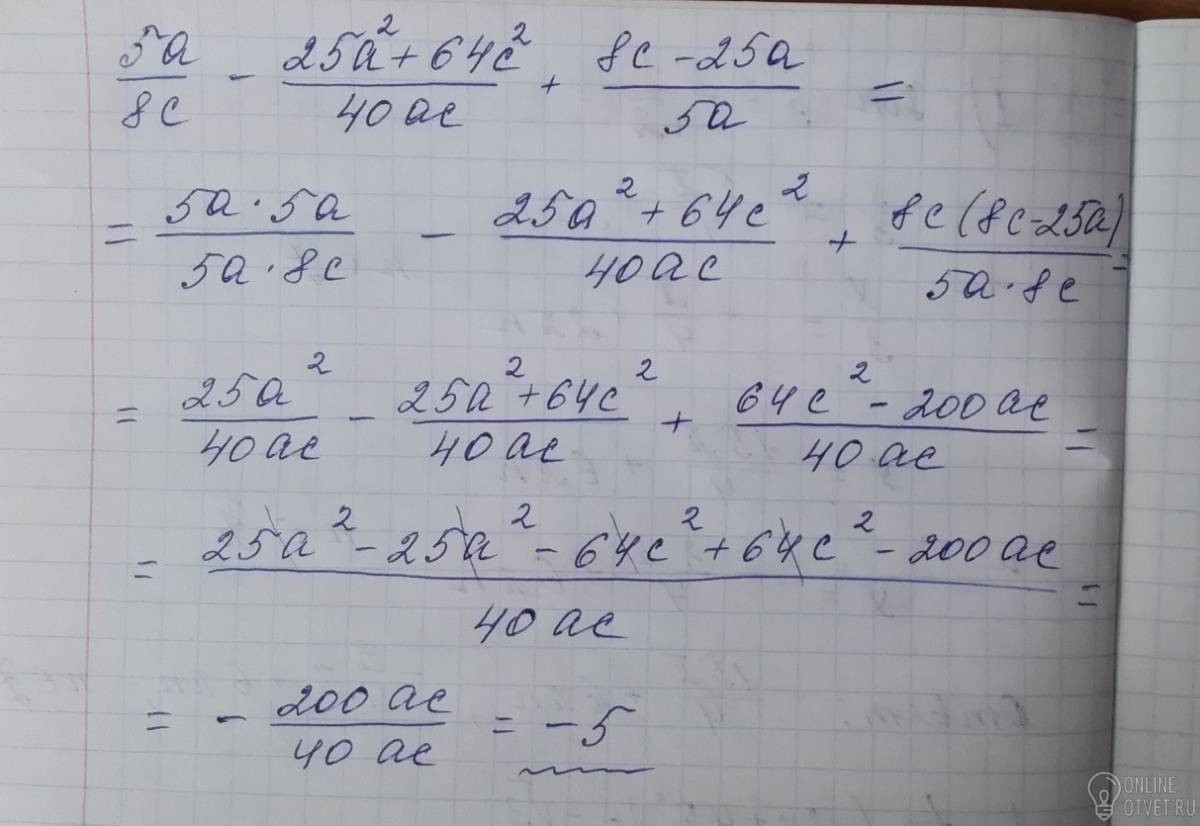 5a/8c - (25a² + 64c²)/40ac + (8c - 25a)/5a =
= (5a · 5a)/(5a · 8c) - (25a² + 64c²)/40ac + 8c(8c - 25a)/(5a · 8c) =
= 25a²/40ac - (25a² + 64c²)/40ac + (64c² - 200ac)/40ac =
= (25a² - 25a² - 64c² + 64c² - 200ac)/40ac =
= - 200ac/40ac = -5
ONLINE
OTVET.RU